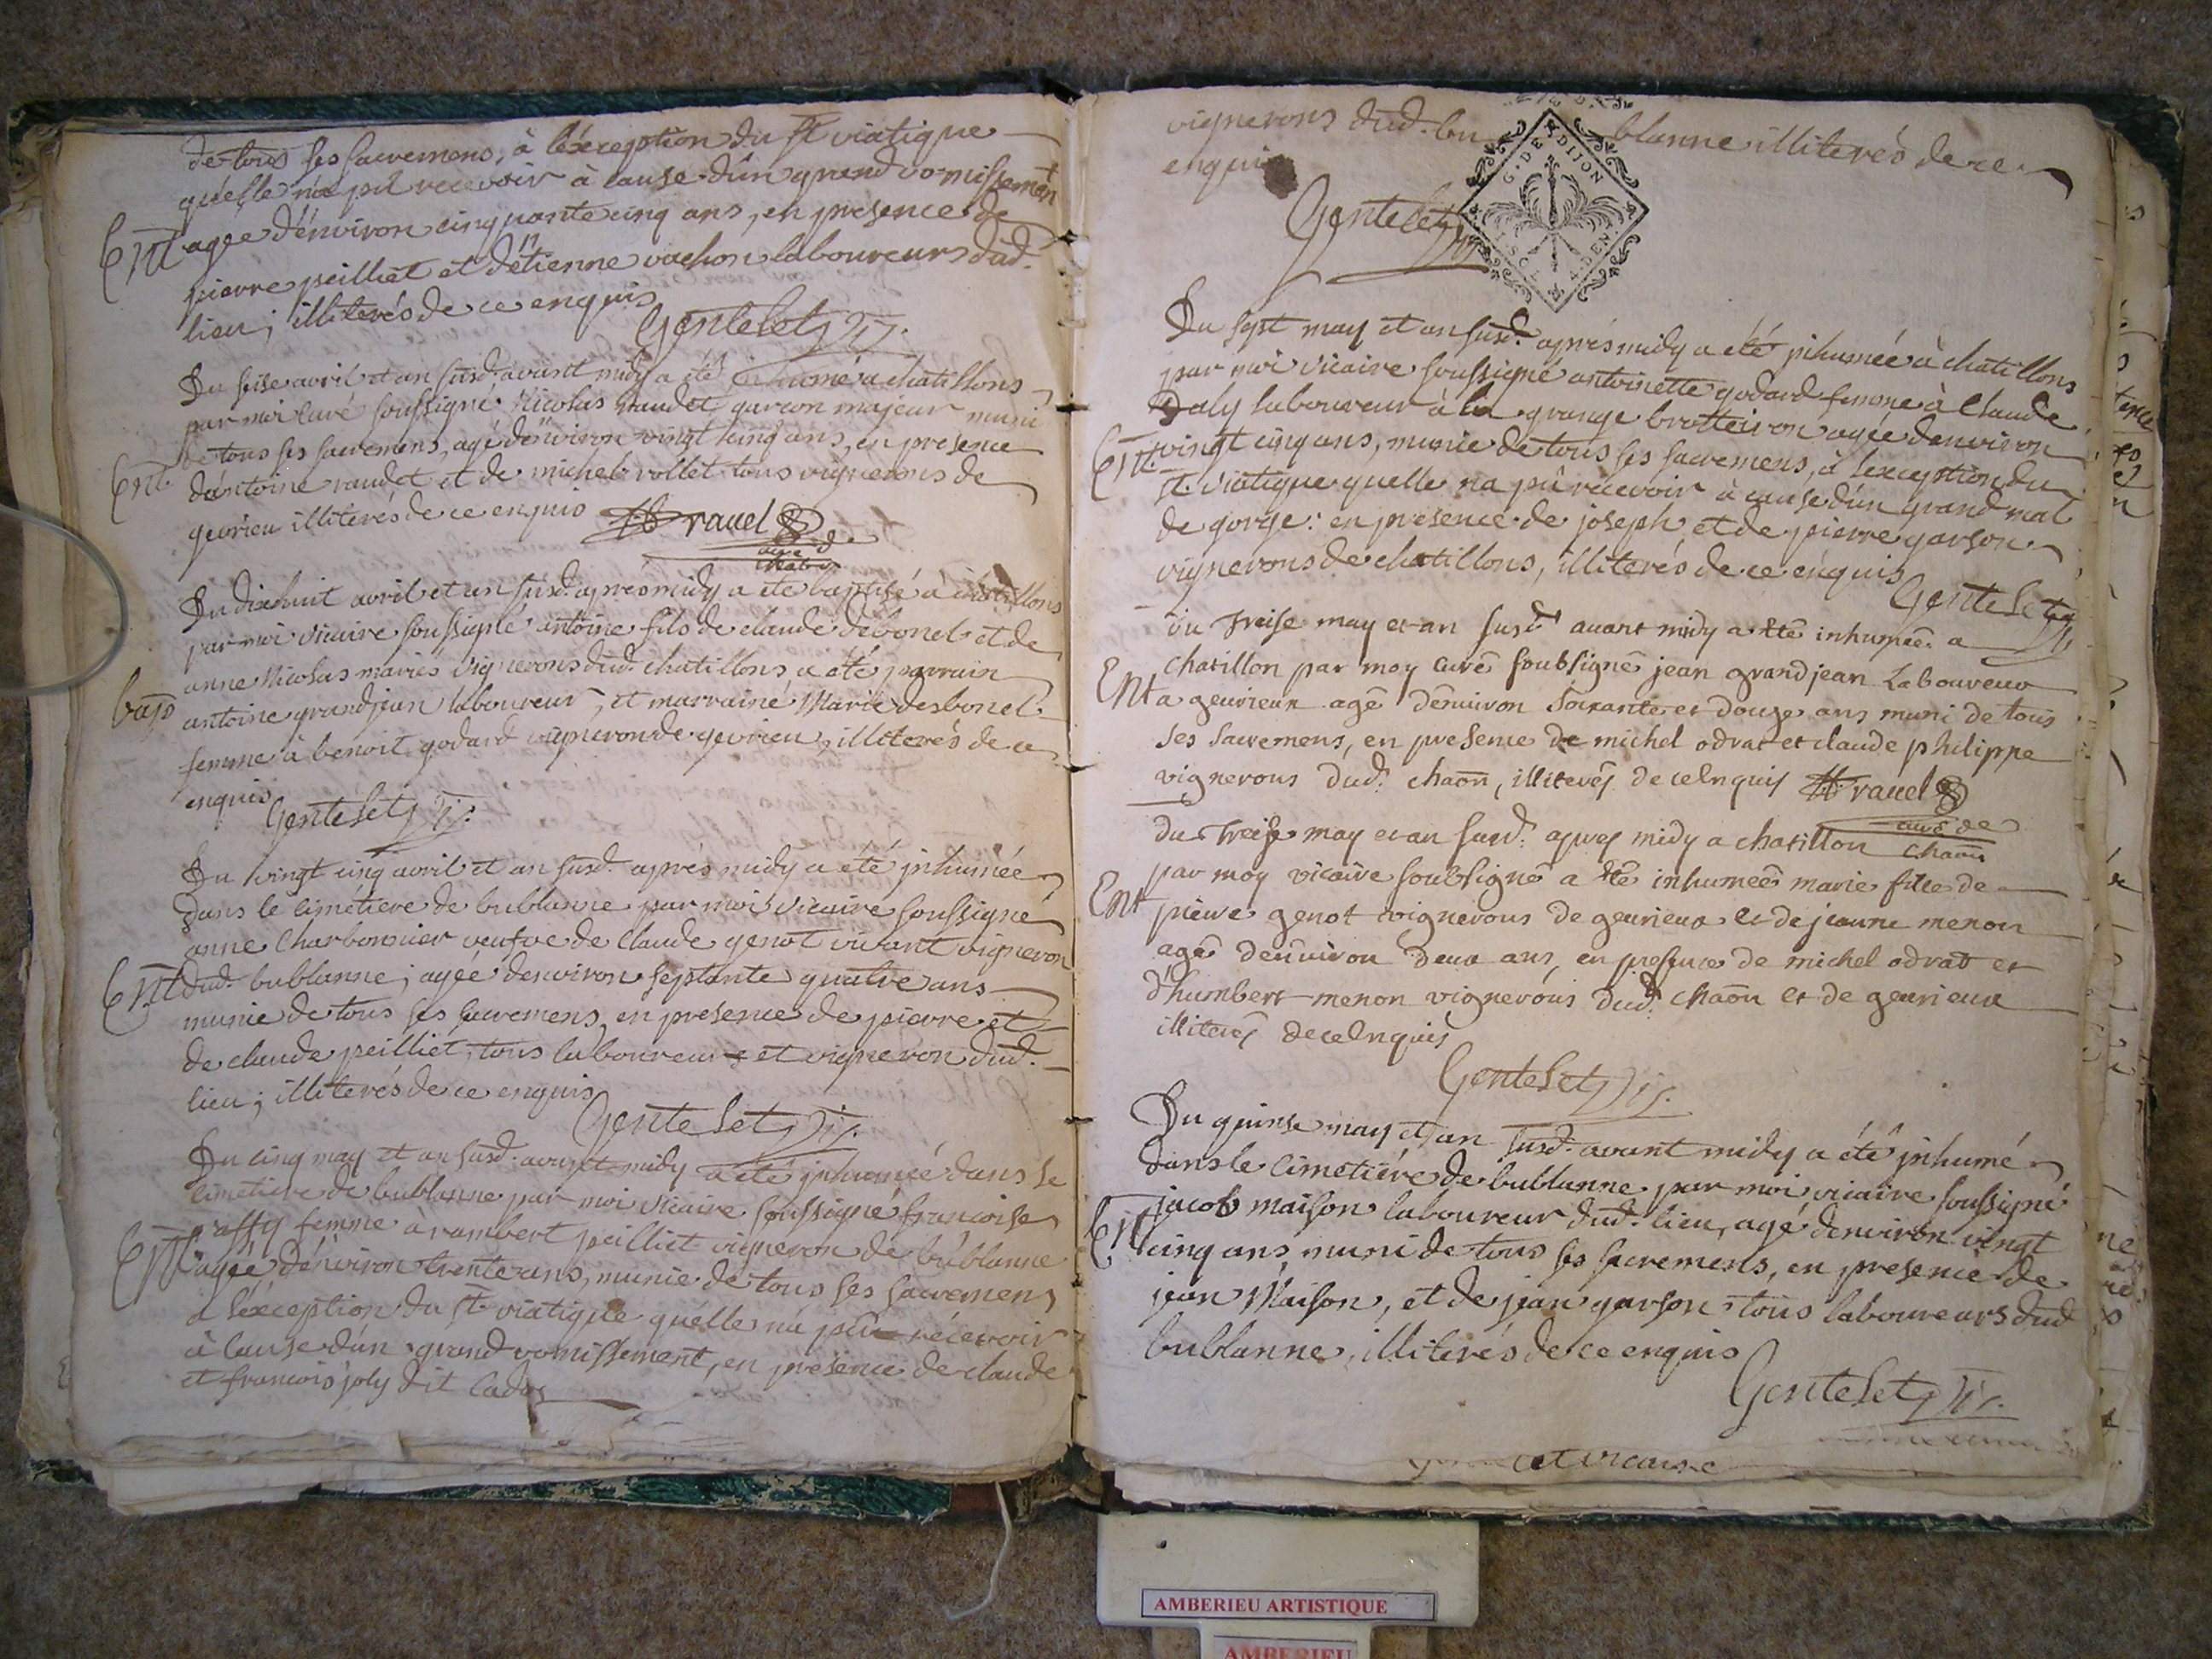 de tous ses sacremens, à l'éxception du st viatique
quelle n'a pû recevoir à cause d'un grand vomissement
Ent agée d'énviron cinquante cinq ans, en présence de
pierre peilliet et d'étienne vachon laboureurs dud.
lieu; illiterés de ce enquis
Gentelet Vic.
Du seise avril et an susd. avant midy a été inhumé à chatillons
par moi curé soussigné Nicolas raudet garcon majeur muni
de tous ses sacremens, agé d'énviron vingt cinq ans, en presence
Ent. d'antoine raudet et de michel rollet tous vignerons de
gevrieu illiterés de ce enquis ravel
curé de
Chaon
Du dixhuit avril et an susd. aprés midy a été baptisé à chatillons
par moi vicaire soussigné antoine fils de claude debonel et de
anne Nicolas mariés vignerons dud. chatillons, a été parrain
bap antoine grandjean laboureur, et marraine Marie desbonel
femme à benoit godard vigneron de gevrieu, illiterés de ce
enquis
Gentelet Vic.
Du vingt cinq avril et an susd. aprés midy a été inhumée
dans le cimétiere de bublanne par moi vicaire soussigné
anne Charbonnier veufve de Claude genot vivant vigneron
Ent dud. bublanne; agéé denviron septante quatre ans
munie de tous ses sacremens, en présence de pierre et
de claude peilliet, tous laboureur et vigneron dud.
lieu; illiterés de ce enquis
Gentelet Vic.
Du cinq may et an susd. avant midy a été inhumée dans le
cimetiere de bublanne par moi vicaire soussigné françoise
rassy femme à rambert peilliet vigneron de bublanne
Ent agée d'énviron trente ans, munie de tous ses sacremens
a l'éxception du st. viatique quélle n'a pû recevoir
à cause d'un grand vomissement, en présence de claude
et francois joly dit Cados
vignerons dud. bublanne illiterés de ce
enquis
G. DE DIJON
Gentelet Vic.
Du sept may et an susd. aprés midy a été inhumée à chatillons
par moi vicaire soussigné antoinette godard femme à Claude
Daly laboureur à la grange brotteiron agée denviron
Ent. vingt cinq ans, munie de tous ses sacremens, à l'exception du
st. viatique quelle na pû recevoir à cause d'un grand mal
de gorge: en présence de joseph et de pierre garson
vignerons de chatillons, illiterés de ce enquis
Gentelet Vic.
du Treise may et an susd. avant midy a été inhumeé a
chatillon par moy curé soubsigné jean grandjean Laboureur
Ent a geurieux agé d'énviron soixante et douze ans muni de tous
ses sacremens, en presence de michel odrat et claude philippe
vignerons dud. chaon, illiterés de ce Enquis ravel
curé de
Chaon
du Treise may et an susd. apres midy a chatillon
par moy vicaire soubsigné a été inhumeé marie fille de
Ent pierre genot vignerons de geurieux et de jeanne menon
agé d'énviron deux ans, en presence de michel odrat et
d'humbert menon vignerons dud. chaon et de geurieux
illiterés de ce Enquis
Gentelet Vic.
Du quinse may et an susd. avant midy a été inhumé
dans le cimetiére de bublanne par moi vicaire soussigné
jacob maison laboureur dud. lieu, agé denviron vingt
Ent cinq ans, muni de tous ses sacremens, en presence de
jean Maison, et de jean garson tous laboureurs dud.
bublanne, illiterés de ce enquis
Gentelet Vic.
et vicaire
AMBERIEU ARTISTIQUE
AMBERIEU